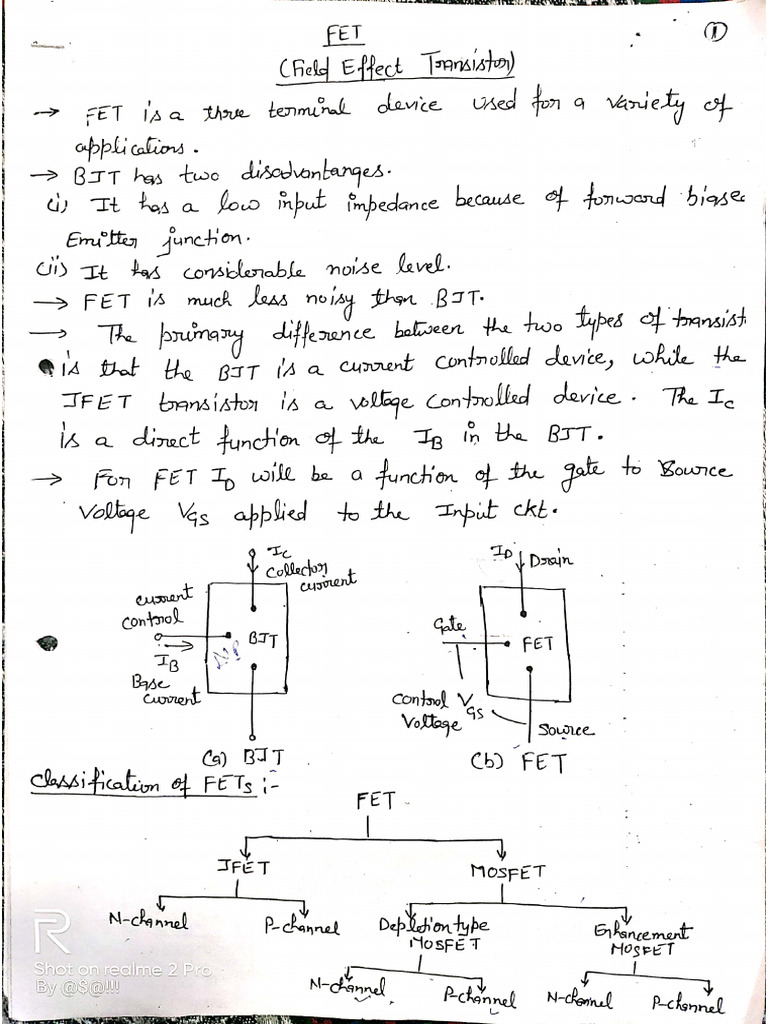 FET
①
(Field Effect Transistor)
→ FET is a three terminal device used for a variety of
applications.
→ BJT has two disadvantanges.
(i) It has a low input impedance because of forward biase
Emitter junction.
(ii) It has considerable noise level.
→ FET is much less noisy than BJT.
→ The primary difference between the two types of transist
is that the BJT is a current controlled device, while the
JFET transistor is a voltage controlled device. The IC
is a direct function of the IB in the BJT.
→ For FET ID will be a function of the gate to source
voltage VGS applied to the Input ckt.
IC
Collector
current
current
control
BJT
IB
Base
current
(a) BJT
ID
Drain
Gate
FET
Control VGS
Voltage
Source
(b) FET
Classification of FETs :-
FET
JFET
MOSFET
N-channel
P-channel
Depletion type
MOSFET
Enhancement
MOSFET
N-channel
P-channel
N-channel
P-channel
R
Shot on realme 2 Pro
By @$@!!!